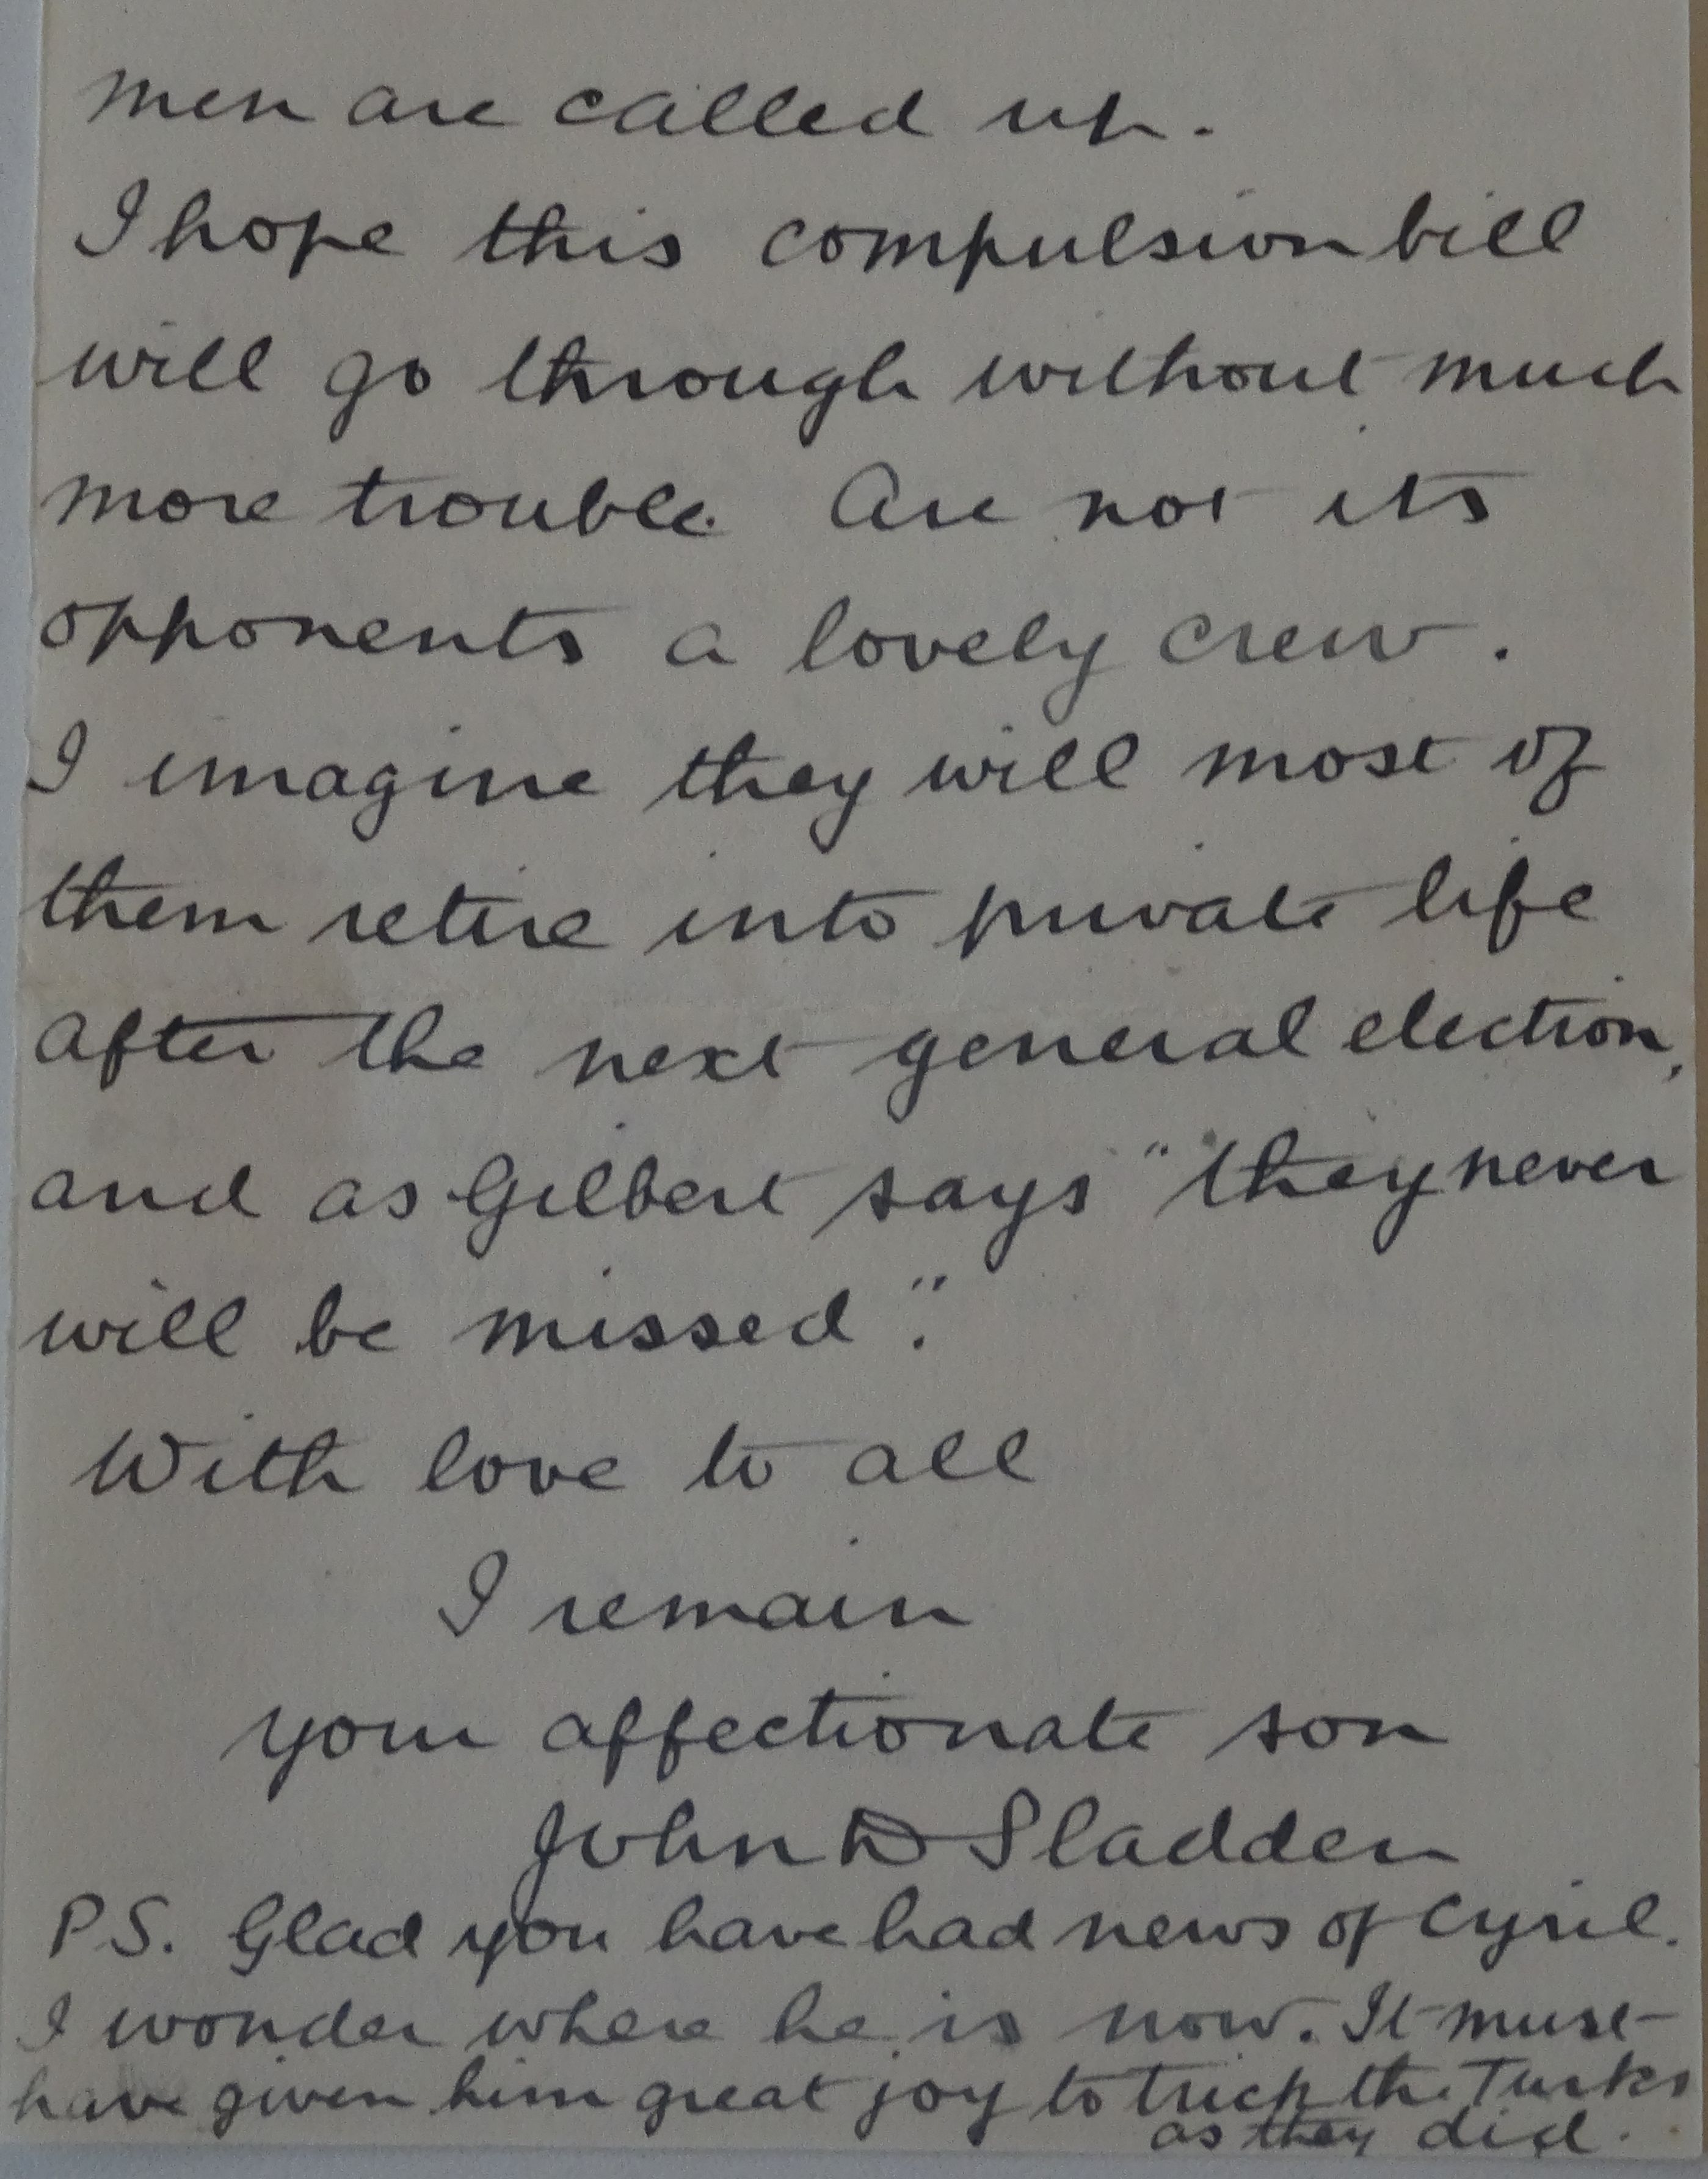 men are called up.
I hope this compulsion bill
will go through without much
more trouble. Are not its
opponents a lovely crew.
I imagine they will most of
them retire into private life
after the next general election,
and as Gilbert says "they never
will be missed".
With love to all
I remain
your affectionate son
John D Sladden
P.S. Glad you have had news of Cyril.
I wonder where he is now. It must
have given him great joy to trick the Turks
as they did.